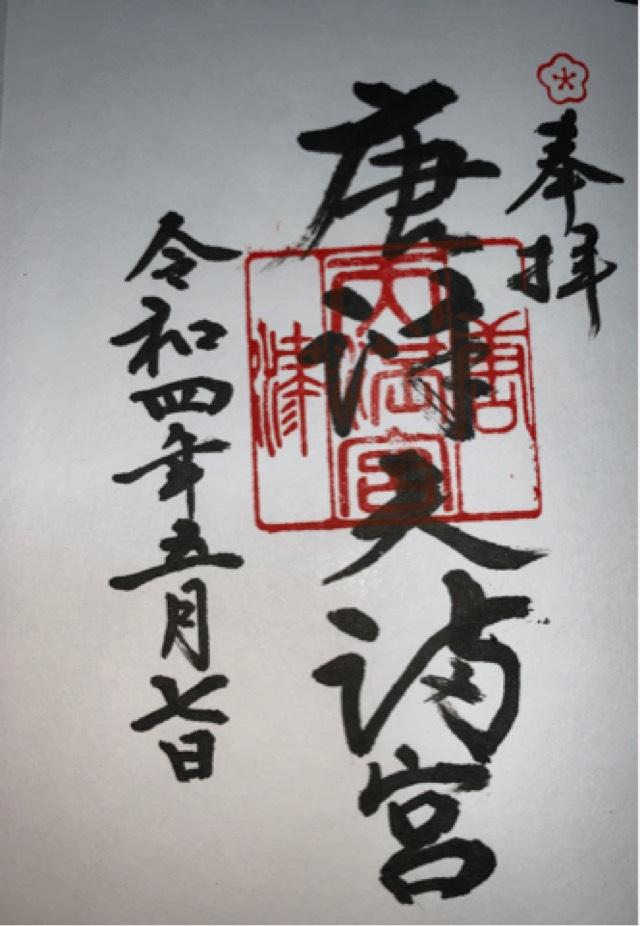 奉拝
唐津天満宮
唐津
天満宮
令和四年五月七日